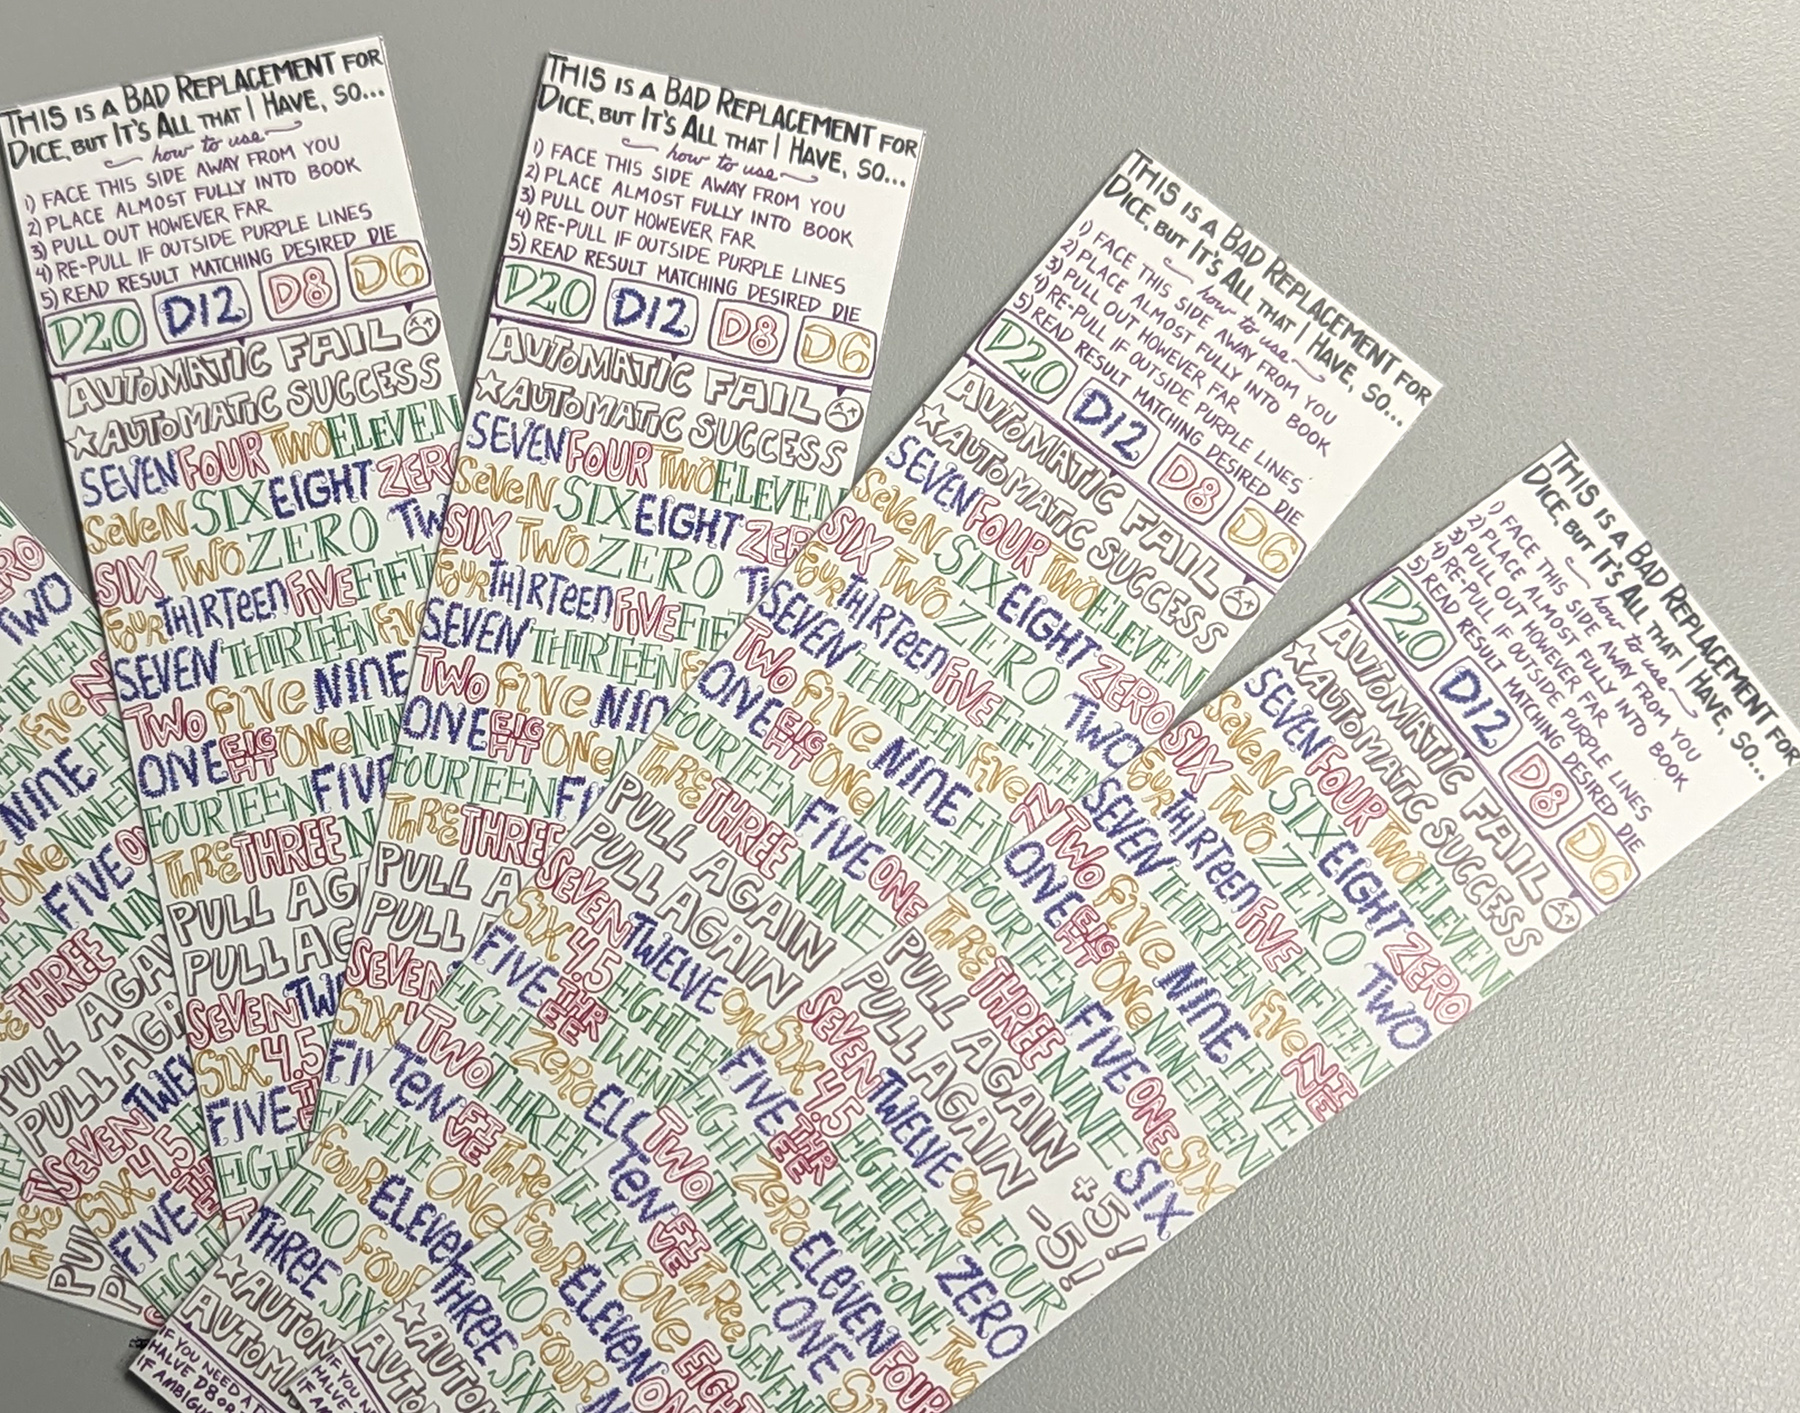 ZERO
TWO
FIFTEEN
FIVE
NINE
ONE
FIVE
THREE
PULL AGAIN
PULL AGA
SEVEN TWEL
SIX 4.5
FIVE
THIS IS A BAD REPLACEMENT FOR
DICE, BUT IT'S ALL THAT I HAVE, SO...
how to use
1) FACE THIS SIDE AWAY FROM YOU
2) PLACE ALMOST FULLY INTO BOOK
3) PULL OUT HOWEVER FAR
4) RE-PULL IF OUTSIDE PURPLE LINES
5) READ RESULT MATCHING DESIRED DIE
D20 D12 D8 D6
AUTOMATIC FAIL
AUTOMATIC SUCCESS
SEVEN FOUR TWO ELEVEN
SEVEN SIX EIGHT ZERO
SIX TWO ZERO TW
FOUR THIRTEEN FIVE FIFT
SEVEN THIRTEEN FIVE
TWO FIVE NINE
ONE EIGHT ONE NIN
FOURTEEN FIVE
THREE THREE N
PULL AG
PULL AG
SEVEN TW
SIX 4.5
FIVE
EIGH
THIS IS A BAD REPLACEMENT FOR
DICE, BUT IT'S ALL THAT I HAVE, SO...
how to use
1) FACE THIS SIDE AWAY FROM YOU
2) PLACE ALMOST FULLY INTO BOOK
3) PULL OUT HOWEVER FAR
4) RE-PULL IF OUTSIDE PURPLE LINES
5) READ RESULT MATCHING DESIRED DIE
D20 D12 D8 D6
AUTOMATIC FAIL
AUTOMATIC SUCCESS
SEVEN FOUR TWO ELEVEN
SEVEN SIX EIGHT ZER
SIX TWO ZERO T
FOUR THIRTEEN FIVE FIF
SEVEN THIRTEEN
TWO FIVE NIN
ONE EIGHT ONE
FOURTEEN FI
THREE THREE
PULL A
PULL
SEVEN
SIX
FIV
THIS IS A BAD REPLACEMENT FOR
DICE, BUT IT'S ALL THAT I HAVE, SO...
how to use
1) FACE THIS SIDE AWAY FROM YOU
2) PLACE ALMOST FULLY INTO BOOK
3) PULL OUT HOWEVER FAR
4) RE-PULL IF OUTSIDE PURPLE LINES
5) READ RESULT MATCHING DESIRED DIE
D20 D12 D8 D6
AUTOMATIC FAIL
AUTOMATIC SUCCESS
SEVEN FOUR TWO ELEVEN
SEVEN SIX EIGHT ZERO
SIX TWO ZERO TWO
FOUR THIRTEEN FIVE FIFTEEN
SEVEN THIRTEEN FIVE N
TWO FIVE NINE FIV
ONE EIGHT ONE NINET
FOURTEEN FIVE ONE
THREE THREE NINE
PULL AGAIN
PULL AGAIN
SEVEN TWELVE ON
SIX 4.5 EIGHTEE
FIVE THREE TWENT
EIGHT ZERO ELE
TWO THREE
TEN FIVE THREE
TWELVE ONE
FOUR ELEVE
TWO FOUR
THREE SIX
AUTOM
AUTOM
IF YOU NEED A D
HALVE D8 OR
IF AMBIGU
THIS IS A BAD REPLACEMENT FOR
DICE, BUT IT'S ALL THAT I HAVE, SO...
how to use
1) FACE THIS SIDE AWAY FROM YOU
2) PLACE ALMOST FULLY INTO BOOK
3) PULL OUT HOWEVER FAR
4) RE-PULL IF OUTSIDE PURPLE LINES
5) READ RESULT MATCHING DESIRED DIE
D20 D12 D8 D6
AUTOMATIC FAIL
AUTOMATIC SUCCESS
SEVEN FOUR TWO ELEVEN
SEVEN SIX EIGHT ZERO
SIX TWO ZERO TWO
FOUR THIRTEEN FIVE FIFTEEN
SEVEN THIRTEEN FIVE NINE
TWO FIVE NINE FIVE
ONE EIGHT ONE NINETEEN
FOURTEEN FIVE ONE SIX
THREE THREE NINE SIX
PULL AGAIN +5!
PULL AGAIN -5!
SEVEN TWELVE ONE FOUR
SIX 4.5 EIGHTEEN ZERO
FIVE THREE TWENTY-ONE TWO
EIGHT ZERO ELEVEN FOUR
TWO THREE ONE SI
TEN FIVE THREE SEVENT
TWELVE ONE EIGHT
FOUR ELEVEN ON
TWO FOUR N
THREE SIXTE
AUTOM
AUTOM
IF YOU N
HALVE
IF AM